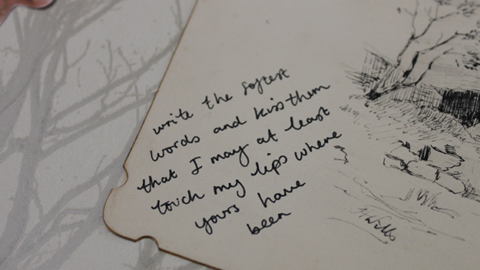 write the softest
words and kiss them
that I may at least
touch my lips where
yours have
been